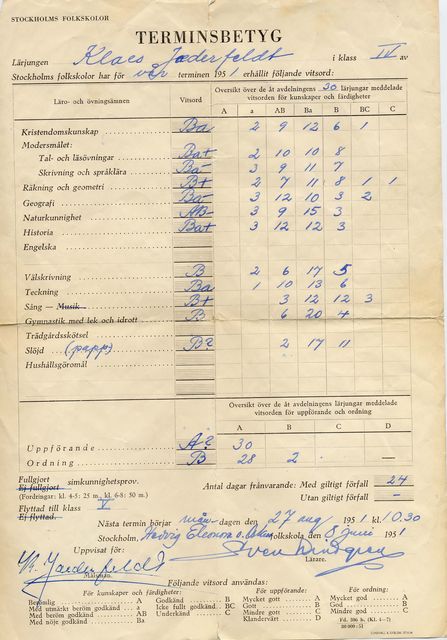 STOCKHOLMS FOLKSKOLOR
TERMINSBETYG
Lärjungen Klaes Jæderfeldt i klass IV av
Stockholms folkskolor har för vår terminen 1951 erhållit följande vitsord:
Läro- och övningsämnen Vitsord Översikt över de åt avdelningens 30 lärjungar meddelade
vitsorden för kunskaper och färdigheter
A a AB Ba B BC C
Kristendomskunskap Ba 2 9 12 6 1
Modersmålet:
Tal- och läsövningar Ba+ 2 10 10 8
Skrivning och språklära Ba- 3 9 11 7
Räkning och geometri B+ 2 7 11 8 1 1
Geografi Ba- 3 12 10 3 2
Naturkunnighet AB- 3 9 15 3
Historia Ba+ 3 12 12 3
Engelska
Välskrivning B 2 6 17 5
Teckning Ba 1 10 13 6
Sång - Musik B+ 3 12 12 3
Gymnastik med lek och idrott B 6 20 4
Trädgårdsskötsel
Slöjd (papp) B? 2 17 11
Hushållsgöromål
Översikt över de åt avdelningens lärjungar meddelade
vitsorden för uppförande och ordning
A B C D
Uppförande A? 30
Ordning B 28 2
Fullgjort
Ej fullgjort simkunnighetsprov.
(Fordringar: kl. 4-5: 25 m., kl. 6-8: 50 m.)
Antal dagar frånvarande: Med giltigt förfall 24
Utan giltigt förfall –
Flyttad till klass V
Ej flyttad.
Nästa termin börjar mån-dagen den 27 aug 1951 kl. 10.30
Stockholm, Hedvig Eleonora o. folkskola den 8 juni 1951
Uppvisat för: Sven Lindgren
Lärare.
Jæderfeldt
Målsman.
Följande vitsord användas:
För kunskaper och färdigheter: För uppförande: För ordning:
Berömlig A Godkänd B Mycket gott A Mycket god A
Med utmärkt beröm godkänd a Icke fullt godkänd BC Gott B God B
Med beröm godkänd AB Underkänd C Mindre gott C Mindre god C
Med nöje godkänd Ba Klandervärt D